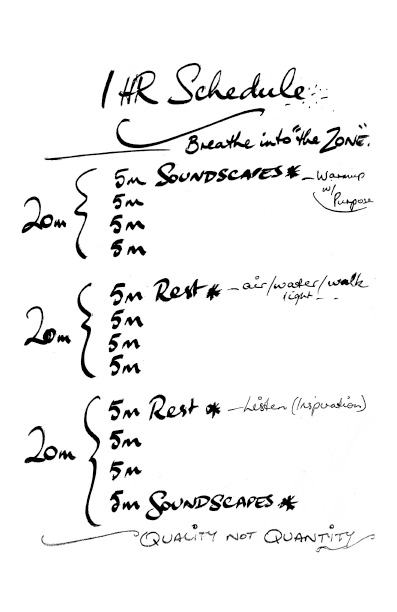 1 HR Schedule
Breathe into "the ZONE".
20m
5m SOUNDSCAPES * - Warmup
w/
Purpose
5m
5m
5m
20m
5m Rest * - air/water/walk
light - -
5m
5m
5m
20m
5m Rest * - Listen (Inspiration)
5m
5m
5m SOUNDSCAPES *
QUALITY NOT QUANTITY